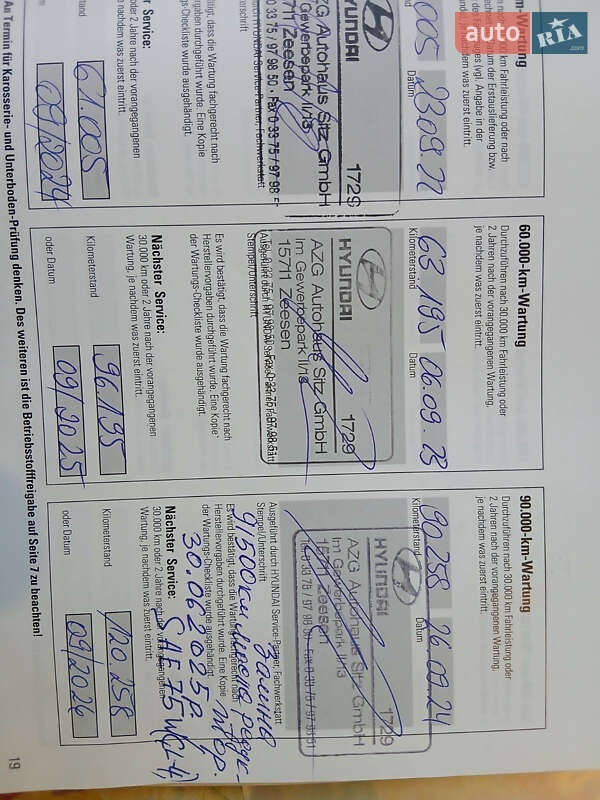 auto RIA.com
m-Wartung
km Fahrleistung oder nach
um der Erstauslieferung bzw.
s (vgl. Angabe in der
was zuerst eintritt.
005
23.09.22
Datum
HYUNDAI
1729
AZG Autohaus Sitz GmbH
Im Gewerbepark II/13
15711 Zeesen
0 33 75 / 97 98 50 · Fax 0 33 75 / 97 98 51
HYUNDAI Service-Partner, Fachwerkstatt
erschrift
tigt, dass die Wartung fachgerecht nach
durchgeführt wurde. Eine Kopie
s-Checkliste wurde ausgehändigt.
r Service:
oder 2 Jahre nach der vorangegangenen
nachdem was zuerst eintritt.
61.005
09/2024
60.000-km-Wartung
Durchzuführen nach 30.000 km Fahrleistung oder
2 Jahren nach der vorangegangenen Wartung,
je nachdem was zuerst eintritt.
63 195
06.09.23
Kilometerstand
Datum
HYUNDAI
1729
AZG Autohaus Sitz GmbH
Im Gewerbepark II/13
15711 Zeesen
Tel. 0 33 75 / 97 98 50 · Fax 0 33 75 / 97 98 51
Ausgeführt durch HYUNDAI Service-Partner, Fachwerkstatt
Stempel/Unterschrift
Es wird bestätigt, dass die Wartung fachgerecht nach
Herstellervorgaben durchgeführt wurde. Eine Kopie
der Wartungs-Checkliste wurde ausgehändigt.
Nächster Service:
30.000 km oder 2 Jahre nach der vorangegangenen
Wartung, je nachdem was zuerst eintritt.
Kilometerstand
96.195
oder Datum
09/2025
90.000-km-Wartung
Durchzuführen nach 30.000 km Fahrleistung oder
2 Jahren nach der vorangegangenen Wartung,
je nachdem was zuerst eintritt.
90.258
26.09.24
Kilometerstand
Datum
HYUNDAI
1729
AZG Autohaus Sitz GmbH
Im Gewerbepark II/13
15711 Zeesen
Tel. 0 33 75 / 97 98 50 · Fax 0 33 75 / 97 98 51
Ausgeführt durch HYUNDAI Service-Partner, Fachwerkstatt
Stempel/Unterschrift
Заміна
91500км
Es wird bestätigt, dass die Wartung fachgerecht nach
Herstellervorgaben durchgeführt wurde. Eine Kopie
der Wartungs-Checkliste wurde ausgehändigt.
30.06.2025р
SAE 75W(GL-4)
Nächster Service:
30.000 km oder 2 Jahre nach der vorangegangenen
Wartung, je nachdem was zuerst eintritt.
Kilometerstand
120.258
oder Datum
09/2026
An Termin für Karosserie- und Unterboden-Prüfung denken. Des weiteren ist die Betriebsstofffreigabe auf Seite 7 zu beachten!
19